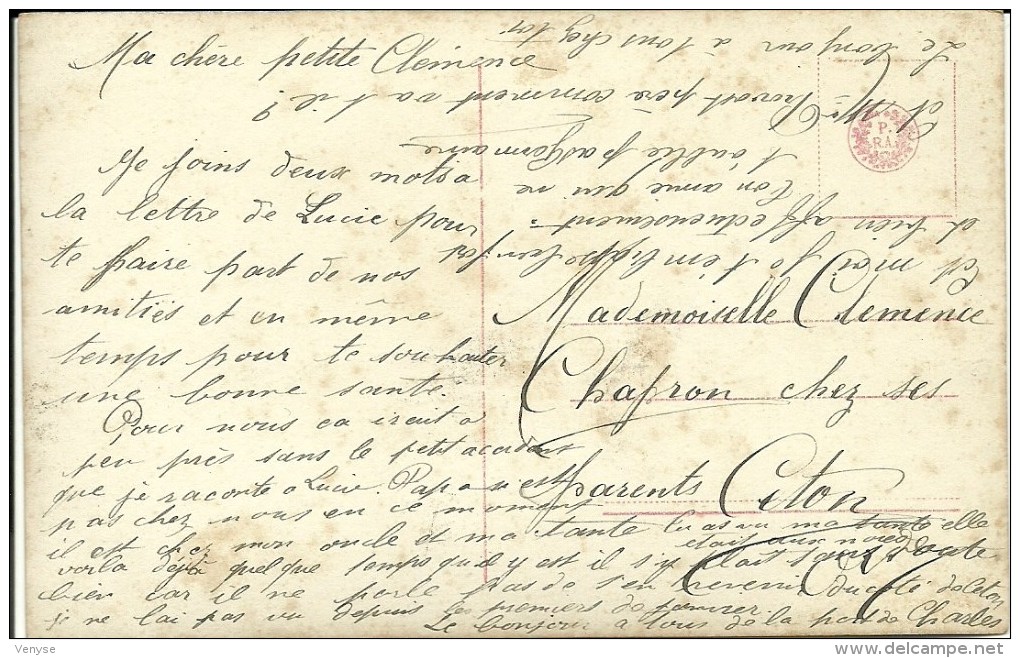 Ma chère petite Clémence
Je joins deux mots a
la lettre de Lucie pour
te faire part de nos
amitiés et en même
temps pour te souhaiter
une bonne santé.
Pour nous ca irait a
peu près sans le petit accident
que je raconte a Lucie. Papa n'est
pas chez nous en ce moment
il est chez mon oncle et ma tante tu as vu ma tante elle
était aux noces
voilà déjà quelque temps qu'il y est il s'y plait sans doute
bien car il ne parle pas de s'en revenir du côté de Citon
je ne lai pas vu depuis les premiers de janvier.
Le bonjour a tous de la part de Charles
Et moi je t'embrasse bien fort
et bien affectueusement.
Ton amie qui ne
t'oublie pas Germaine
et Mr Provost père comment va t il ?
Le bonjour à tous chez toi
P.
RA.
Mademoiselle Clemence
Chafron chez ses
parents Citon
Venyse
delcampe.net